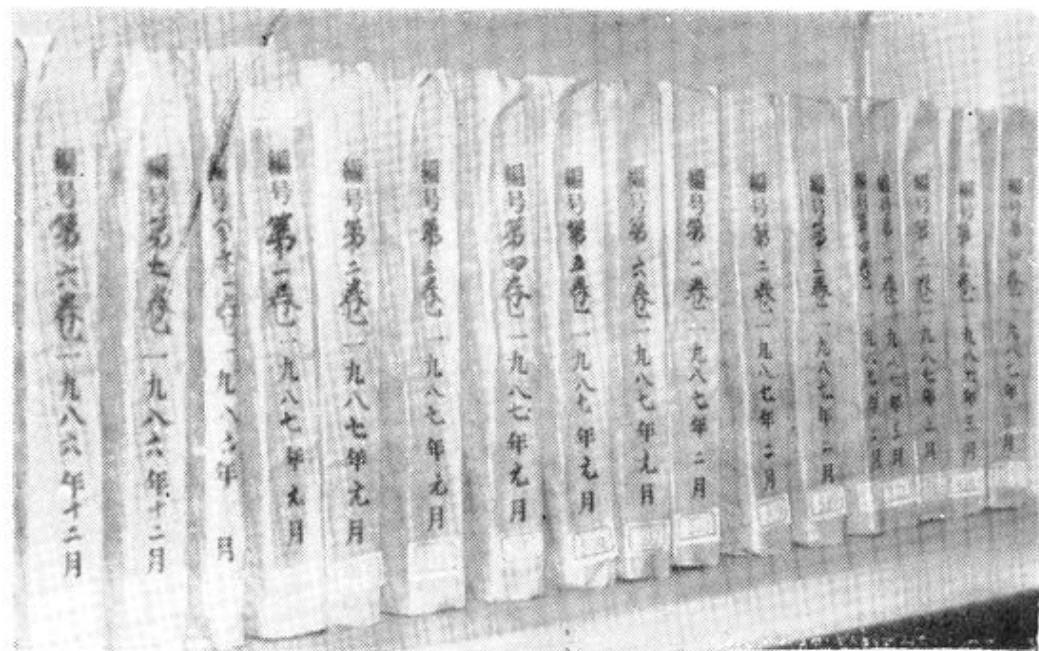 编号第六卷 一九八六年十二月
编号第七卷 一九八六年十二月
编号 一九八六年 月
编号第一卷 一九八七年元月
编号第二卷 一九八七年元月
编号第三卷 一九八七年元月
编号第四卷 一九八七年元月
编号第五卷 一九八七年元月
编号第六卷 一九八七年元月
编号第一卷 一九八七年二月
编号第二卷 一九八七年二月
编号第三卷 一九八七年二月
编号第四卷 一九八七年二月
编号第一卷 一九八七年三月
编号第二卷 一九八七年三月
编号第三卷 一九八七年三月
编号第四卷 一九八七年三月